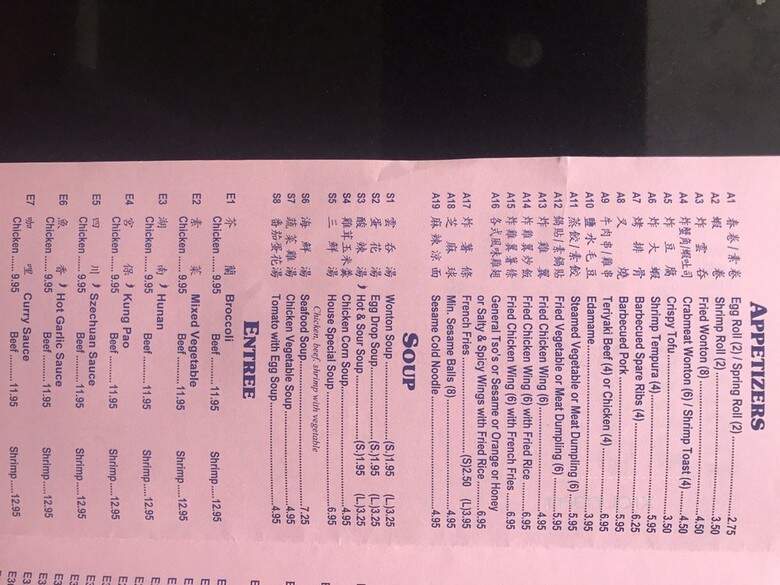 APPETIZERS
A1 春卷/素卷 Egg Roll (2) / Spring Roll (2) 2.75
A2 蝦卷 Shrimp Roll (2) 3.50
A3 炸雲吞 Fried Wonton (8) 4.50
A4 炸蟹角/蝦吐司 Crabmeat Wonton (6) / Shrimp Toast (4) 4.50
A5 炸豆腐 Crispy Tofu 3.50
A6 炸大蝦 Shrimp Tempura (4) 5.95
A7 烤排骨 Barbecued Spare Ribs (4) 6.25
A8 叉燒 Barbecued Pork 5.95
A9 牛肉串/雞串 Teriyaki Beef (4) or Chicken (4) 6.95
A10 鹽水毛豆 Edamame 3.95
A11 蒸餃/素餃 Steamed Vegetable or Meat Dumpling (6) 5.95
A12 鍋貼/素鍋貼 Fried Vegetable or Meat Dumpling (6) 5.95
A13 炸雞翼 Fried Chicken Wing (6) 4.95
A14 炸雞翼炒飯 Fried Chicken Wing (6) with Fried Rice 6.95
A15 炸雞翼薯條 Fried Chicken Wing (6) with French Fries 6.95
A16 各式風味雞翅 General Tso's or Sesame or Orange or Honey
or Salty & Spicy Wings with Fried Rice 6.95
A17 炸薯條 French Fries (S)2.50 (L)3.95
A18 芝麻球 Min. Sesame Balls (8) 4.95
A19 麻辣涼面 Sesame Cold Noodle 4.95
SOUP
S1 雲吞湯 Wonton Soup (S)1.95 (L)3.25
S2 蛋花湯 Egg Drop Soup (S)1.95 (L)3.25
S3 酸辣湯 Hot & Sour Soup (S)1.95 (L)3.25
S4 雞茸玉米羹 Chicken Corn Soup 4.95
S5 三鮮湯 House Special Soup 6.95
Chicken, beef, shrimp with vegetable
S6 海鮮湯 Seafood Soup 7.25
S7 蔬菜雞湯 Chicken Vegetable Soup 4.95
S8 番茄蛋花湯 Tomato with Egg Soup 4.95
ENTREE
E1 芥蘭 Broccoli
Chicken 9.95 Beef 11.95 Shrimp 12.95
E2 素菜 Mixed Vegetable
Chicken 9.95 Beef 11.95 Shrimp 12.95
E3 湖南 Hunan
Chicken 9.95 Beef 11.95 Shrimp 12.95
E4 宮保 Kung Pao
Chicken 9.95 Beef 11.95 Shrimp 12.95
E5 四川 Szechuan Sauce
Chicken 9.95 Beef 11.95 Shrimp 12.95
E6 魚香 Hot Garlic Sauce
Chicken 9.95 Beef 11.95 Shrimp 12.95
E7 咖哩 Curry Sauce
Chicken 9.95 Beef 11.95 Shrimp 12.95